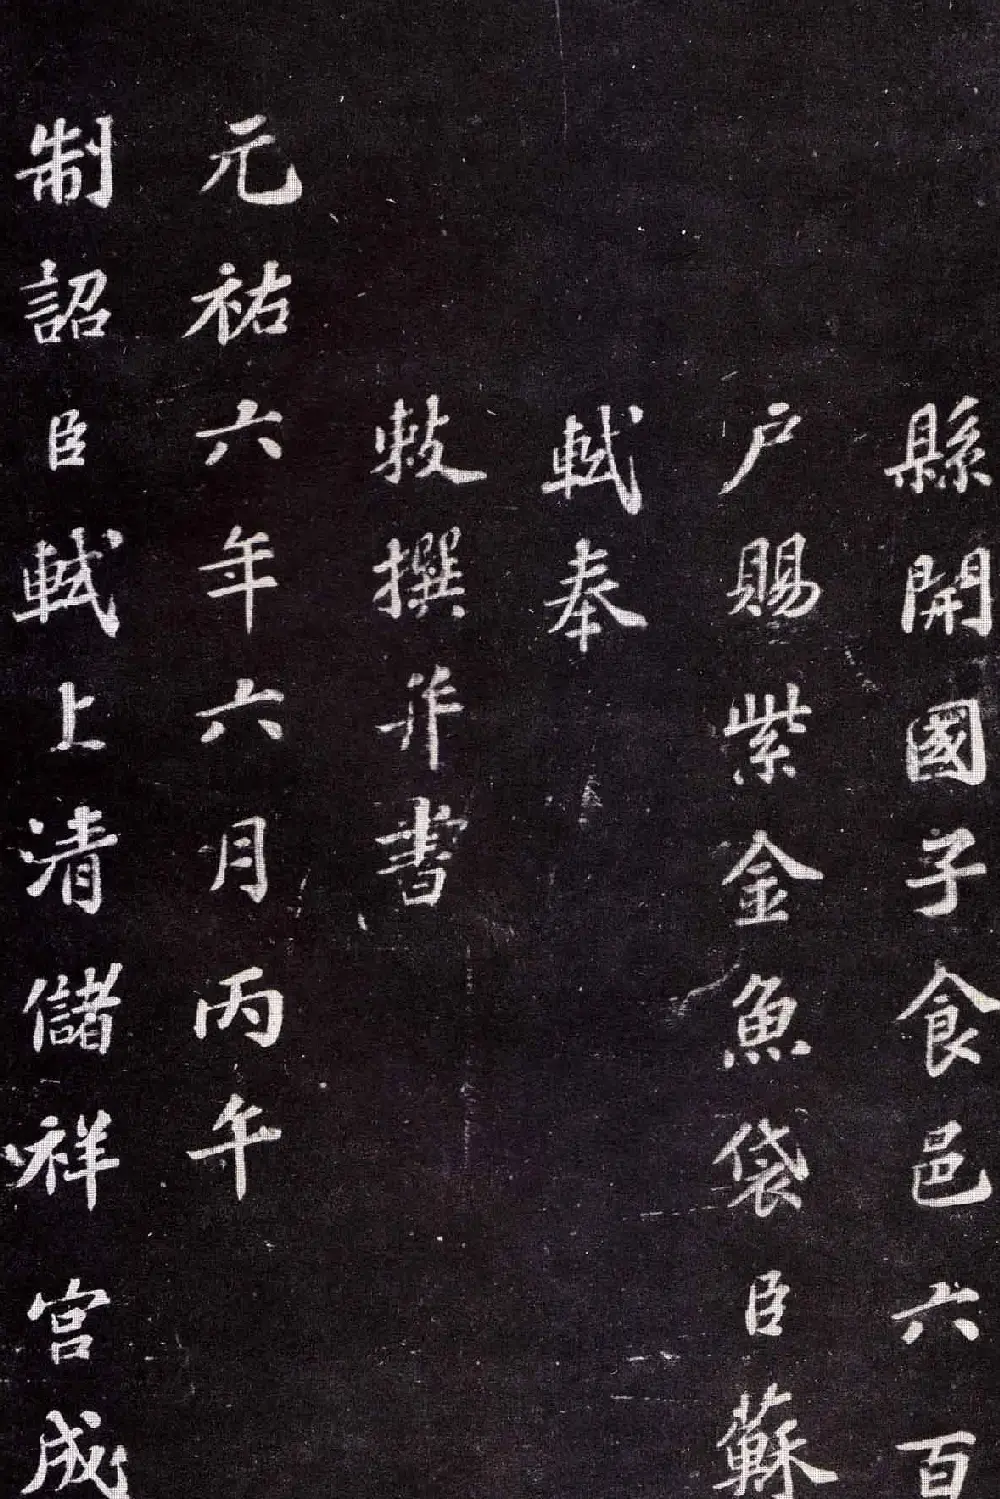 縣開國子食邑六百
戶賜紫金魚袋臣蘇
軾奉
敕撰并書
元祐六年六月丙午
制詔臣軾上清儲祥宮成